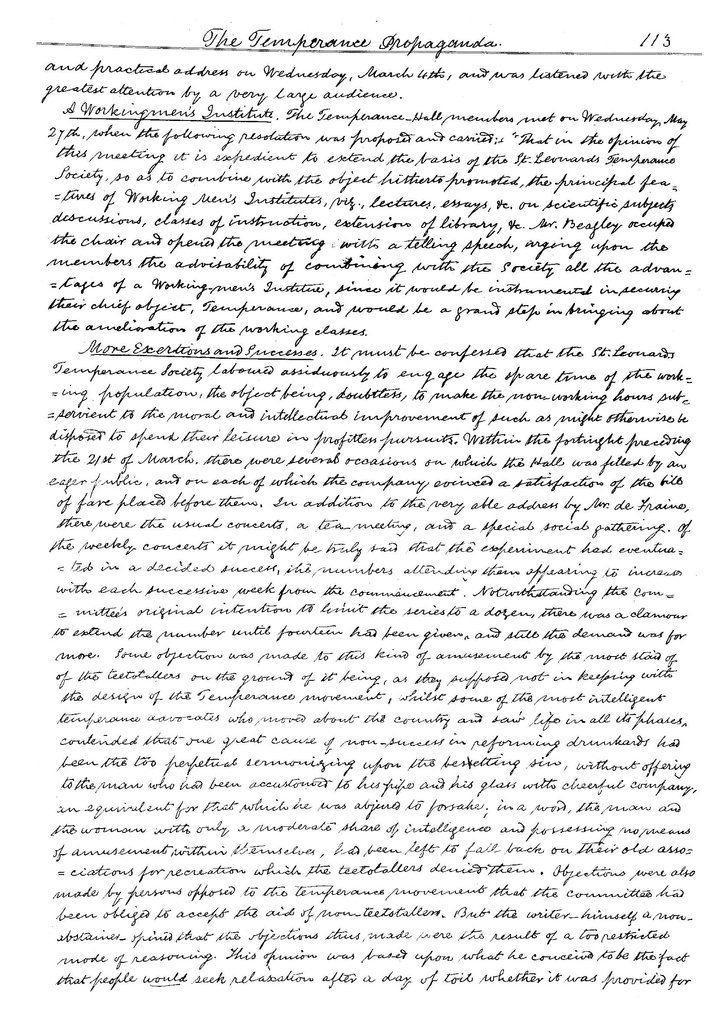 The Temperance Propaganda. 113
and practical address on Wednesday, March 4th, and was listened with the
greatest attention by a very large audience.
A Workingmen's Institute. The Temperance-Hall members met on Wednesday, May
27th, when the following resolution was proposed and carried; "That in the opinion of
this meeting it is expedient to extend the basis of the St. Leonards Temperance
Society, so as to combine with the object hitherto promoted, the principal fea=
=tures of Working Men's Institutes, viz., lectures, essays, &c. on scientific subjects
discussions, classes of instruction, extension of library, &c. Mr. Beagley occupied
the chair and opened the meeting with a telling speech, urging upon the
members the advisability of combining with the Society all the advan=
=tages of a Workingmen's Institute, since it would be instrumental in securing
their chief object, Temperance, and would be a grand step in bringing about
the amelioration of the working classes.
More Exertions and Successes. It must be confessed that the St. Leonards
Temperance Society laboured assiduously to engage the spare time of the work=
=ing population, the object being, doubtless, to make the non-working hours sub=
=servient to the moral and intellectual improvement of such as might otherwise be
disposed to spend their leisure in profitless pursuits. Within the fortinght preceding
the 21st of March, there were several occasions on which the Hall was filled by an
eager public, and on each of which the company evinced a satisfaction of the bill
of fare placed before them. In addition to the very able address by Mr. de Fraine,
there were the usual concerts, a tea-meeting, and a special social gathering. Of
the weekly concerts it might be truly said that the experiment had eventua=
=ted in a decided success, the numbers attending them appearing to increase
with each successive week from the commencement. Notwithstanding the com=
=mittee's original intention to limit the series to a dozen, there was a clamour
to extend the number until fourteen had been given, and still the demand was for
more. Some objection was made to this kind of amusement by the most staid of
of the teetotallers on the ground of it being, as they supposed not in keeping with
the design of the Temperance movement, whilst some of the most intelligent
temperance advocates who moved about the country and saw life in all its phases,
contended that one great cause of non-success in reforming drunkards had
been the too perpetual sermonizing upon the besetting sin, without offering
to the man who had been accustomed to his pipe and his glass with cheerful company,
an equivalent for that which he was abjured to forsake; in a word, the man and
the woman with only a moderate share of intelligence and possessing no means
of amusement within themselves, had been left to fall back on their old asso=
=ciations for recreation which the teetotallers denied them. Objections were also
made by persons opposed to the temperance movement that the committee had
been obliged to accept the aid of non-teetotallers. But the writer-himself a non-
abstainer-opined that the objections thus made were the result of a too restricted
mode of reasoning. This opinion was based upon what he conceived to be the fact
that people would seek relaxation after a day of toil whether it was provided for